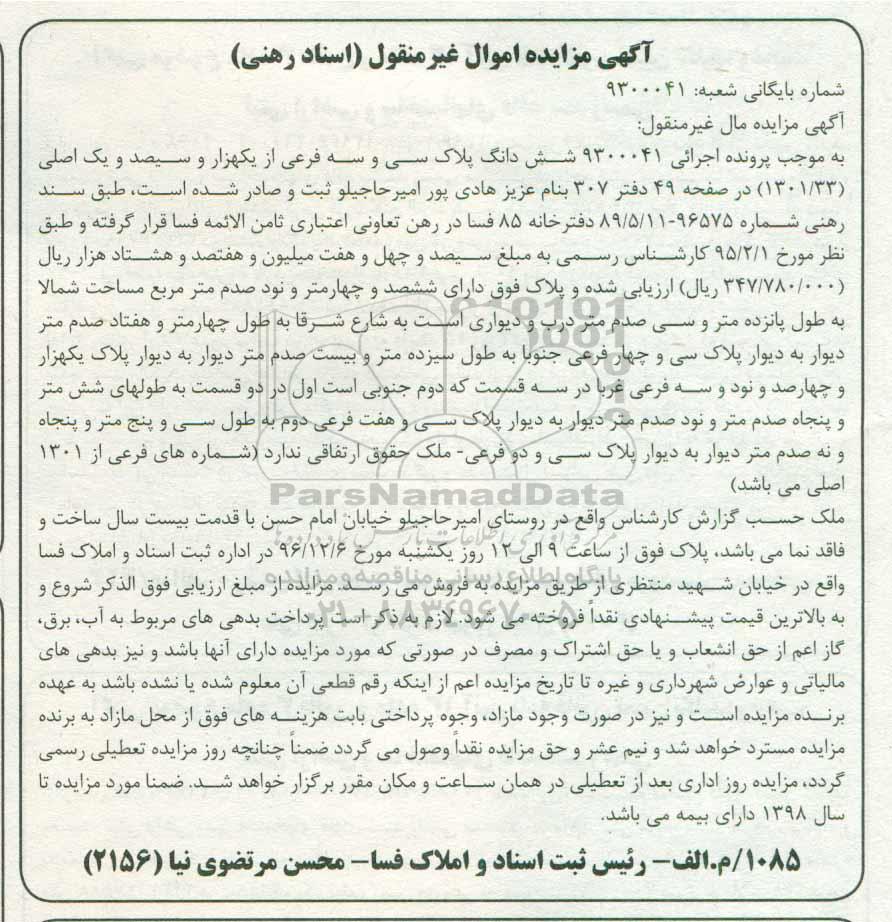 آگهی مزایده اموال غیرمنقول (اسناد رهنی)
شماره بایگانی شعبه: ۹۳۰۰۰۴۱
آگهی مزایده مال غیرمنقول:
به موجب پرونده اجرائی ۹۳۰۰۰۴۱ شش دانگ پلاک سی و سه فرعی از یکهزار و سیصد و یک اصلی
(۱۳۰۱/۳۳) در صفحه ۴۹ دفتر ۳۰۷ بنام عزیز هادی پور امیرحاجیلو ثبت و صادر شده است، طبق سند
رهنی شماره ۹۶۵۷۵-۸۹/۵/۱۱ دفترخانه ۸۵ فسا در رهن تعاونی اعتباری ثامن الائمه فسا قرار گرفته و طبق
نظر مورخ ۹۵/۲/۱ کارشناس رسمی به مبلغ سیصد و چهل و هفت میلیون و هفتصد و هشتاد هزار ریال
(۳۴۷/۷۸۰/۰۰۰ ریال) ارزیابی شده و پلاک فوق دارای ششصد و چهارمتر و نود صدم متر مربع مساحت شمالا
به طول پانزده متر و سی صدم متر درب و دیواری است به شارع شرقا به طول چهارمتر و هفتاد صدم متر
دیوار به دیوار پلاک سی و چهار فرعی جنوبا به طول سیزده متر و بیست صدم متر دیوار به دیوار پلاک یکهزار
و چهارصد و نود و سه فرعی غربا در سه قسمت که دوم جنوبی است اول در دو قسمت به طولهای شش متر
و پنجاه صدم متر و نود صدم متر دیوار به دیوار پلاک سی و هفت فرعی دوم به طول سی و پنج متر و پنجاه
و نه صدم متر دیوار به دیوار پلاک سی و دو فرعی- ملک حقوق ارتفاقی ندارد (شماره های فرعی از ۱۳۰۱
اصلی می باشد)
ParsNamadData
ملک حسب گزارش کارشناس واقع در روستای امیرحاجیلو خیابان امام حسن با قدمت بیست سال ساخت و
فاقد نما می باشد، پلاک فوق از ساعت ۹ الی ۱۲ روز یکشنبه مورخ ۹۶/۱۲/۶ در اداره ثبت اسناد و املاک فسا
پایگاه اطلاع رسانی مناقصه و مزایده
واقع در خیابان شهید منتظری از طریق مزایده به فروش می رسد. مزایده از مبلغ ارزیابی فوق الذکر شروع و
به بالاترین قیمت پیشنهادی نقداً فروخته می شود. لازم به ذکر است پرداخت بدهی های مربوط به آب، برق،
گاز اعم از حق انشعاب و یا حق اشتراک و مصرف در صورتی که مورد مزایده دارای آنها باشد و نیز بدهی های
مالیاتی و عوارض شهرداری و غیره تا تاریخ مزایده اعم از اینکه رقم قطعی آن معلوم شده یا نشده باشد به عهده
برنده مزایده است و نیز در صورت وجود مازاد، وجوه پرداختی بابت هزینه های فوق از محل مازاد به برنده
مزایده مسترد خواهد شد و نیم عشر و حق مزایده نقداً وصول می گردد ضمناً چنانچه روز مزایده تعطیلی رسمی
گردد، مزایده روز اداری بعد از تعطیلی در همان ساعت و مکان مقرر برگزار خواهد شد. ضمنا مورد مزایده تا
سال ۱۳۹۸ دارای بیمه می باشد.
۱۰۸۵/م.الف- رئیس ثبت اسناد و املاک فسا- محسن مرتضوی نیا (۲۱۵۶)